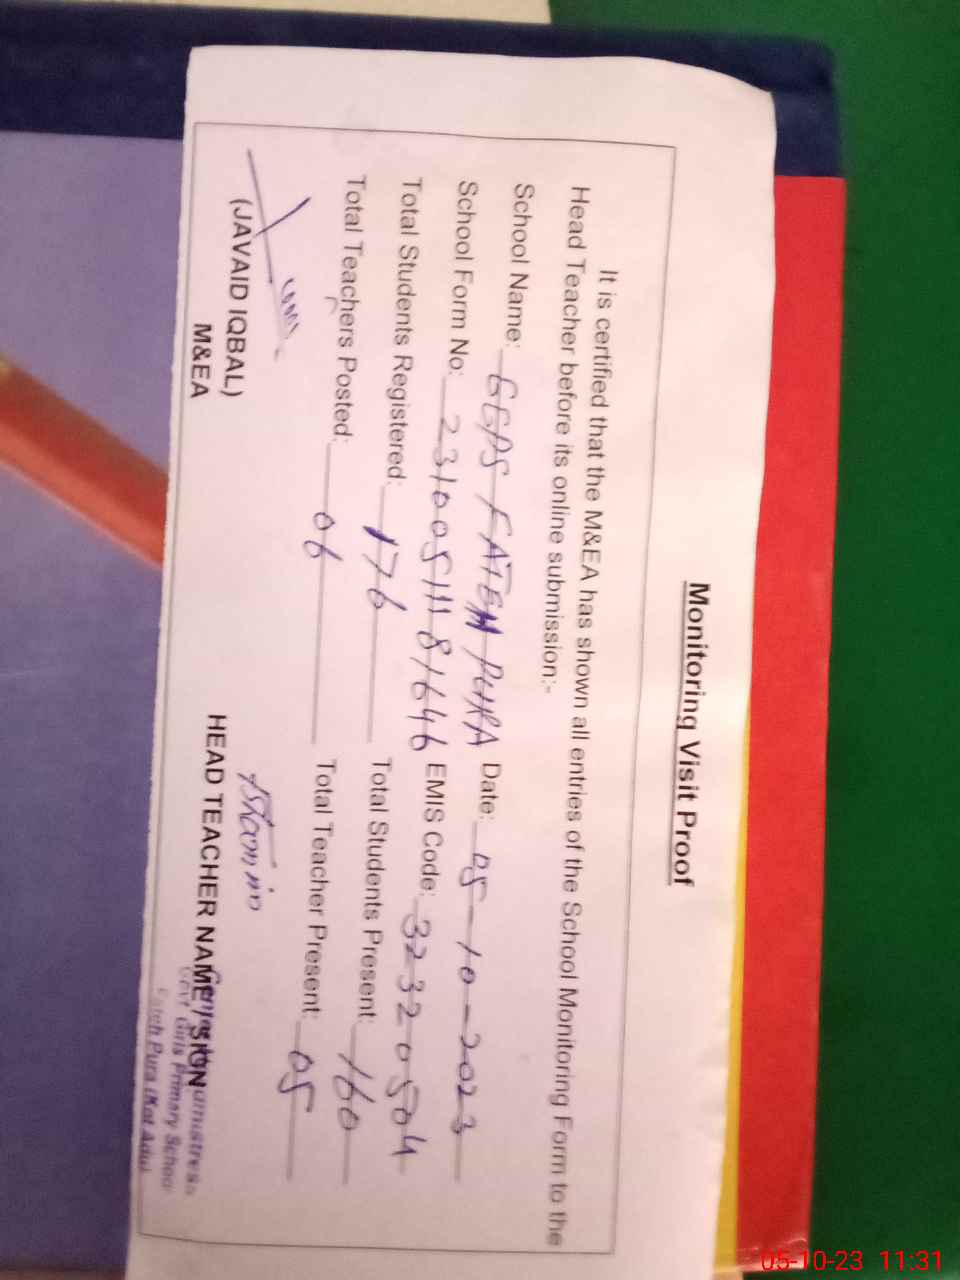 Monitoring Visit Proof
It is certified that the M&EA has shown all entries of the School Monitoring Form to the
Head Teacher before its online submission:-
School Name: GGPS FATEH PURA Date: 05-10-2023
School Form No: 23100511181646 EMIS Code: 32320504
Total Students Registered: 176 Total Students Present: 160
Total Teachers Posted: 06 Total Teacher Present: 05
(JAVAID IQBAL)
M&EA
HEAD TEACHER NAME / SIGN
Govt Girls Primary School
Fateh Pura (Kot Adu)
05-10-23 11:31